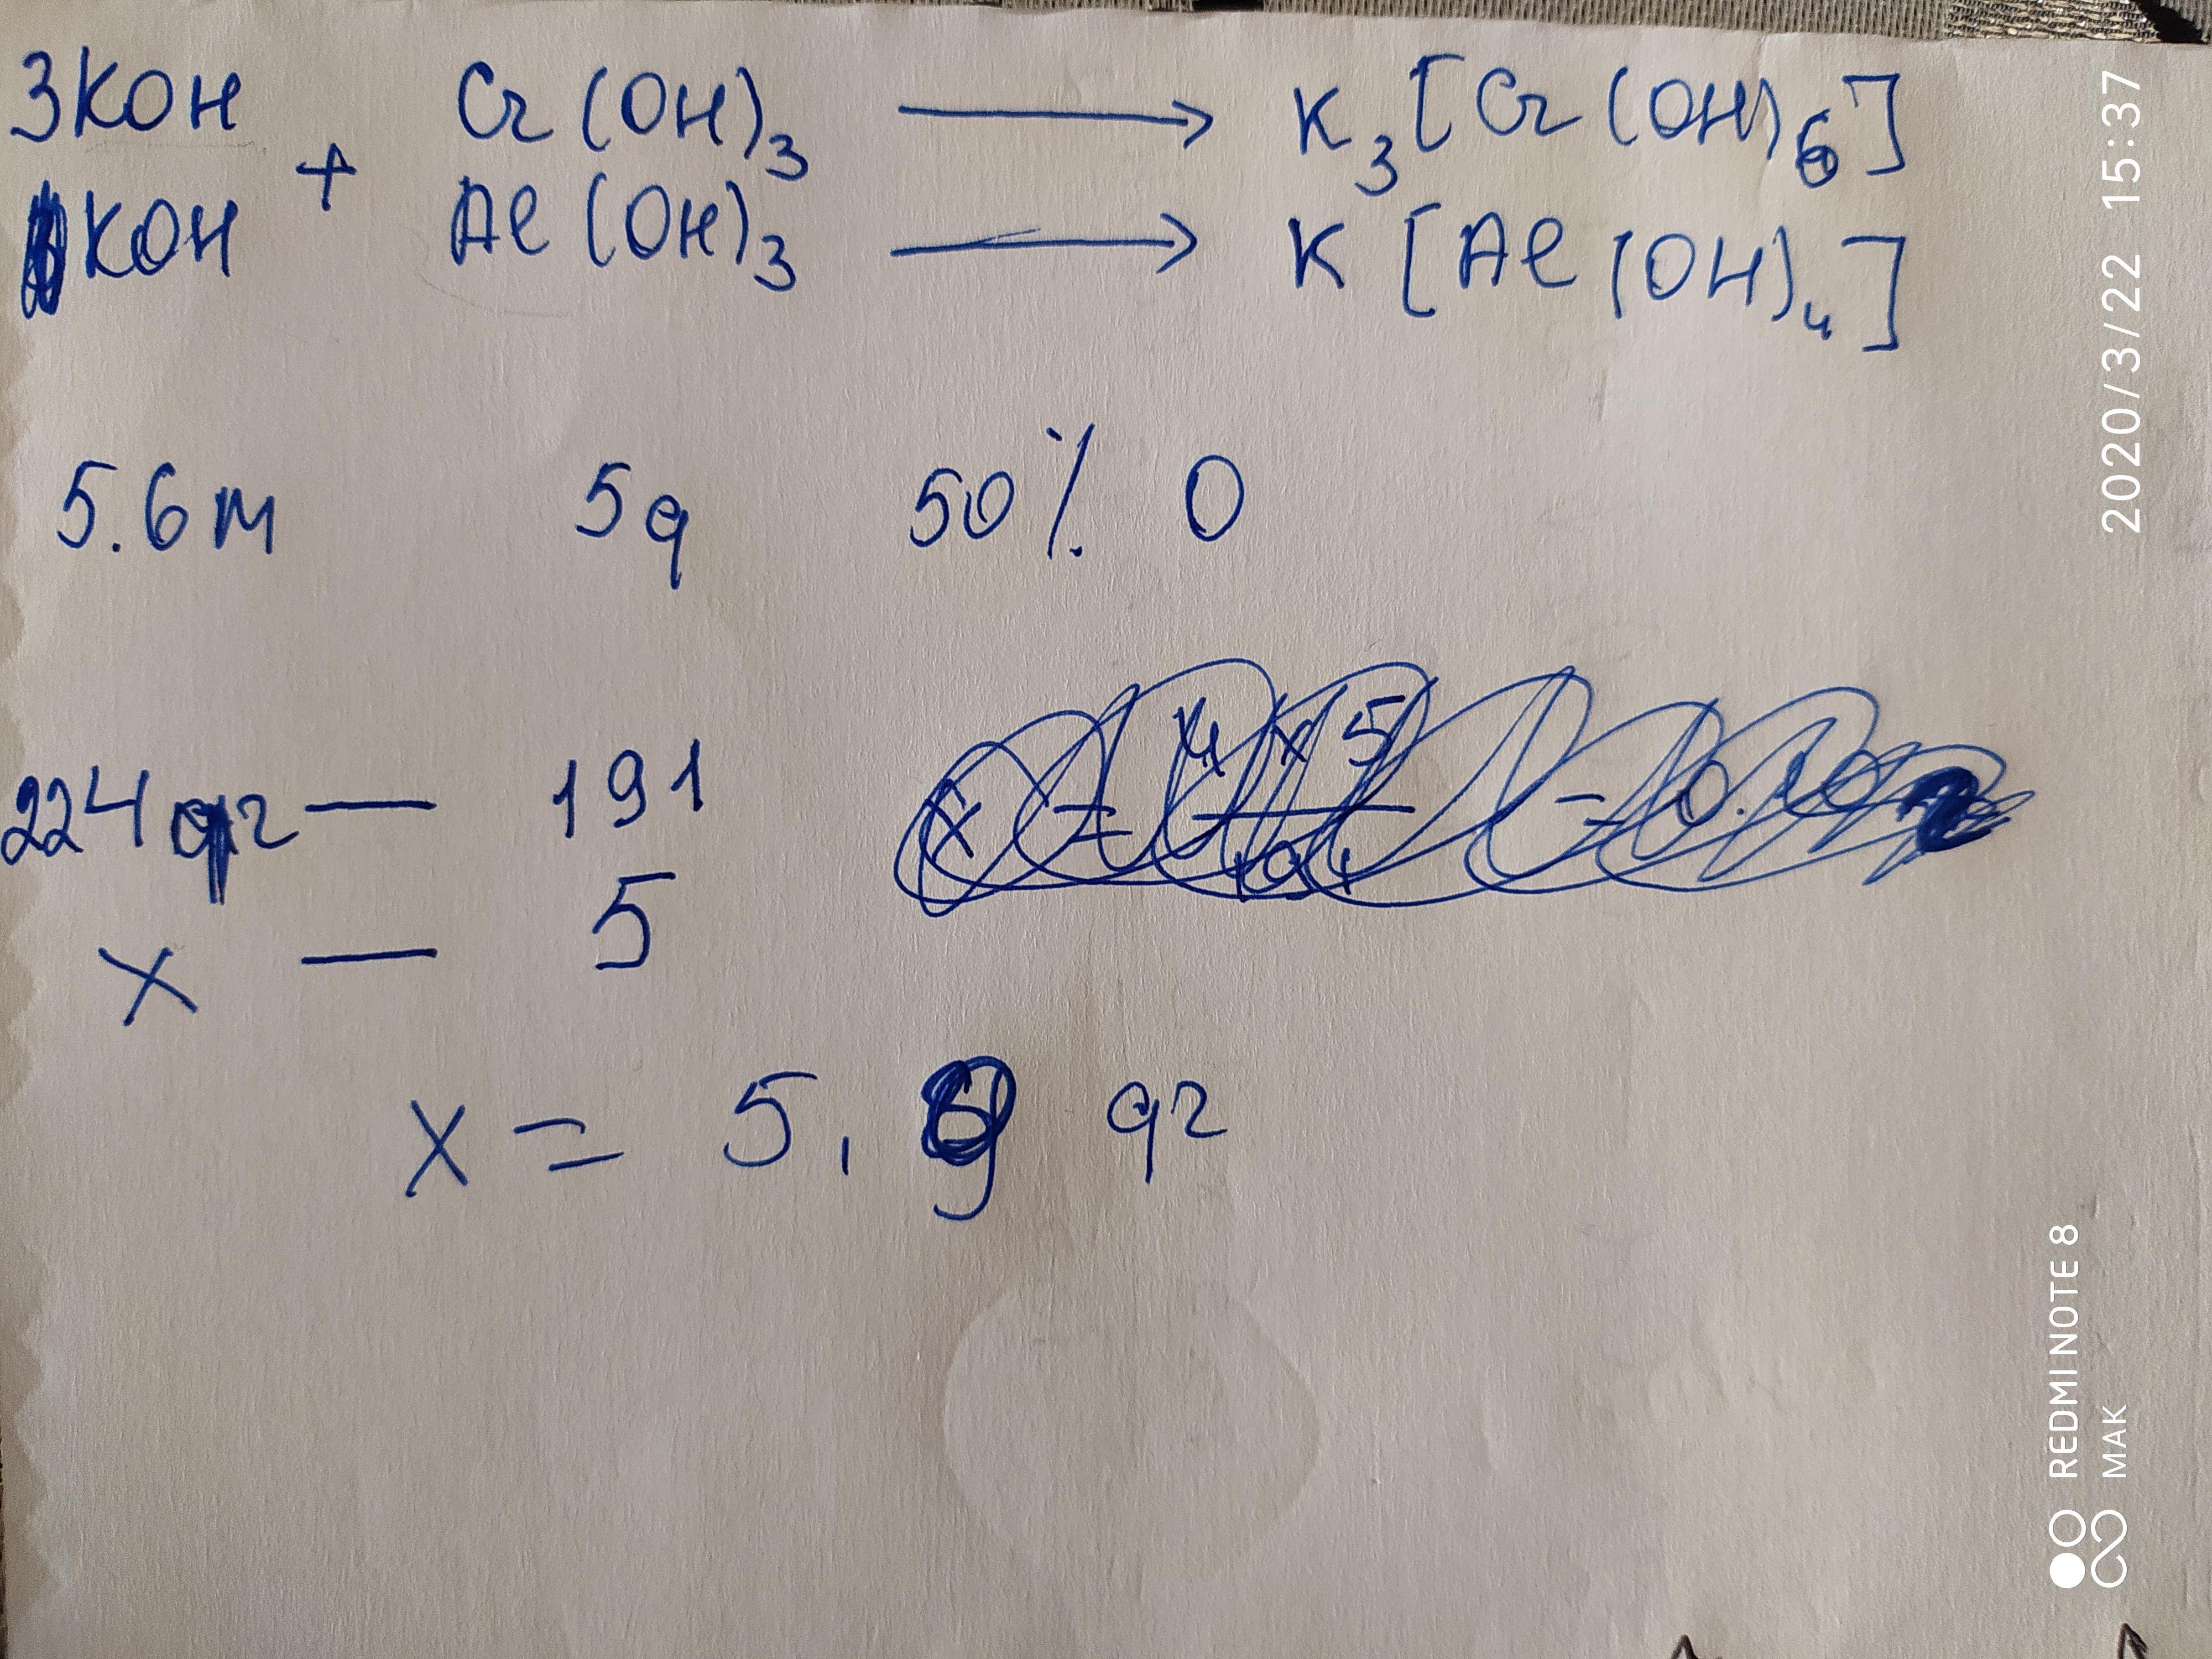 3KOH + Cr(OH)₃ ⟶ K₃[Cr(OH)₆]
KOH Al(OH)₃ ⟶ K[Al(OH)₄]
5.6м 5q 50% O
224 qг — 191
x — 5
x = 5,9 qг
2020/3/22 15:37
REDMI NOTE 8
МАК